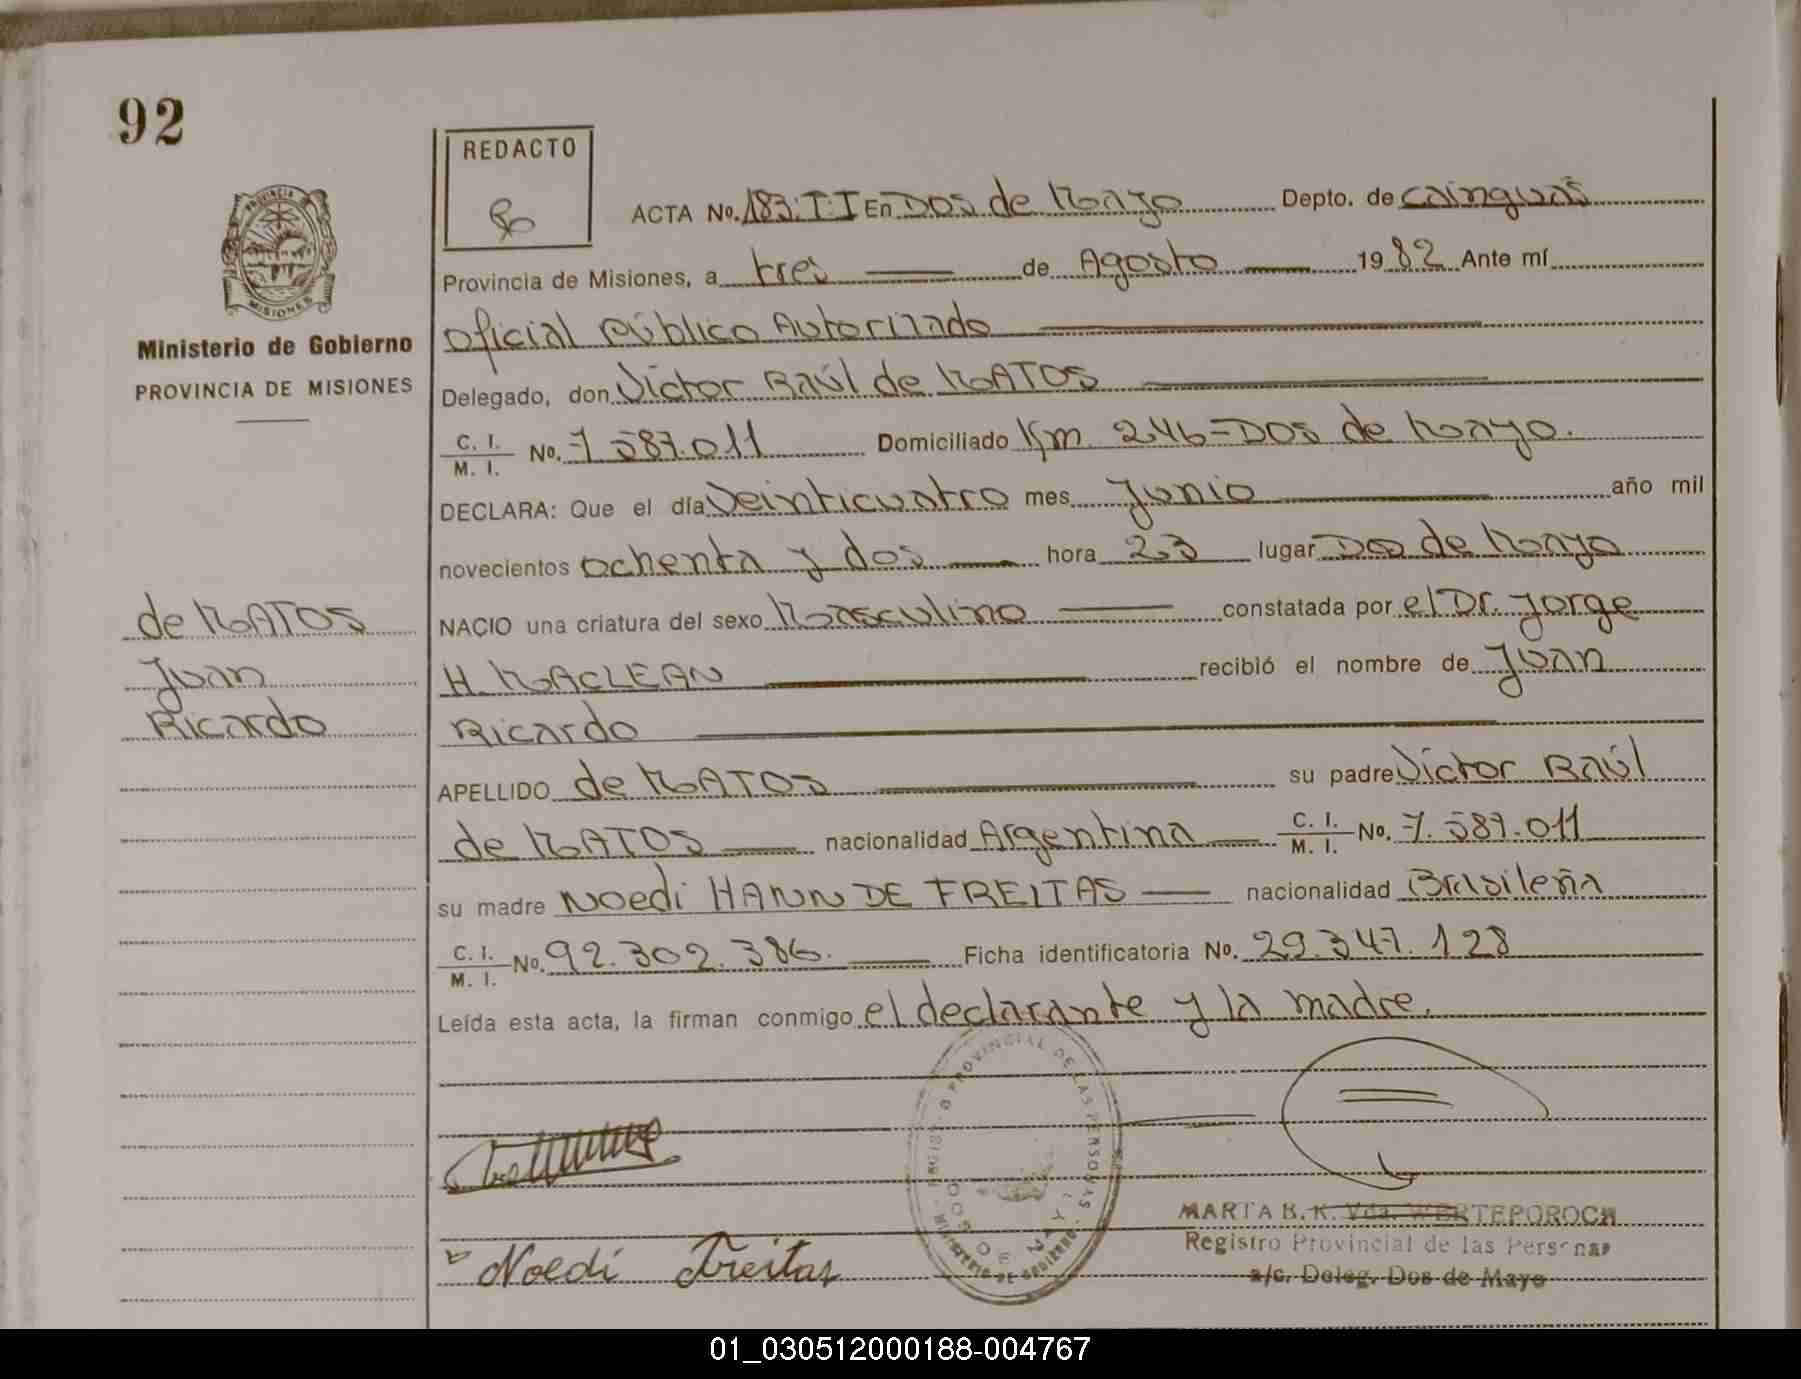 92
REDACTO
ACTA No. 183. T. I En Dos de Mayo Depto. de Cainguás
Provincia de Misiones, a tres de Agosto 1982 Ante mí
Ministerio de Gobierno
PROVINCIA DE MISIONES
Oficial Público Autorizado
Delegado, don Victor Raúl de MATOS
C. I.
M. I. No. 7.587.011 Domiciliado Km. 246-Dos de Mayo.
DECLARA: Que el día Veinticuatro mes Junio año mil
novecientos ochenta y dos hora 23 lugar Dos de Mayo
de MATOS
Juan
Ricardo
NACIO una criatura del sexo Masculino constatada por el Dr. Jorge
H. MACLEAN recibió el nombre de Juan
Ricardo
APELLIDO de MATOS su padre Victor Raúl
de MATOS nacionalidad Argentina C. I. M. I. No. 7.587.011
su madre Noedi HANN DE FREITAS nacionalidad Brasileña
C. I.
M. I. No. 92.302.386. Ficha identificatoria No. 29.347.128
Leída esta acta, la firman conmigo el declarante y la madre.
Noedi Freitas
MARTA B. K. Vda. WERTEPOROCH
Registro Provincial de las Personas
a/c. Deleg. Dos de Mayo
01_030512000188-004767